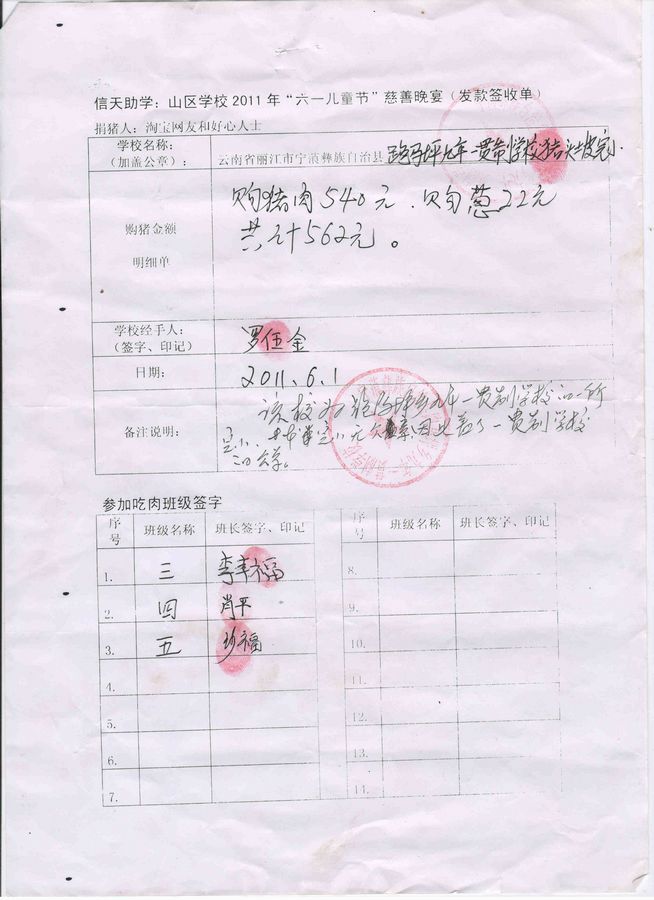 信天助学：山区学校2011年“六一儿童节”慈善晚宴（发款签收单）
捐猪人：淘宝网友和好心人士
学校名称：
（加盖公章）：
云南省丽江市宁蒗彝族自治县 跑马坪九年一贯制学校猪头坡完小
购猪金额
明细单
购猪肉540元、购葱22元
共计562元。
学校经手人：
（签字、印记）
罗伍金
日期：
2011.6.1
备注说明：
该校为跑马坪乡九年一贯制学校的一所
完小、 完小无公章 因此盖了一贯制学校
的公章。
参加吃肉班级签字
序号 班级名称 班长签字、印记 序号 班级名称 班长签字、印记
1. 三 李幸福 8.
2. 四 肖平 9.
3. 五 福 10.
4. 11.
5. 12.
6. 13.
7. 14.